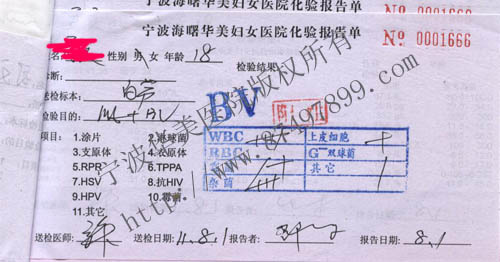 宁波海曙华美妇女医院化验报告单
宁波海曙华美妇女医院化验报告单
№ 0001666
№ 0001666
名 性别 男 女 年龄 18 检验结果:
诊断:
送检标本: 白带
检验目的:
BV
项目: 1.涂片 2.淋球菌
3.支原体 4.衣原体
5.RPR 6.TPPA
7.HSV 8.抗HIV
9.HPV 10.霉菌
11.其它
WBC 上皮细胞 +
RBC G⁻双球菌
杂菌 其它
宁波华美医院版权所有
http://www.87497899.com
送检医师: 送检日期: 11.8.1 报告者: 报告日期: 8.1